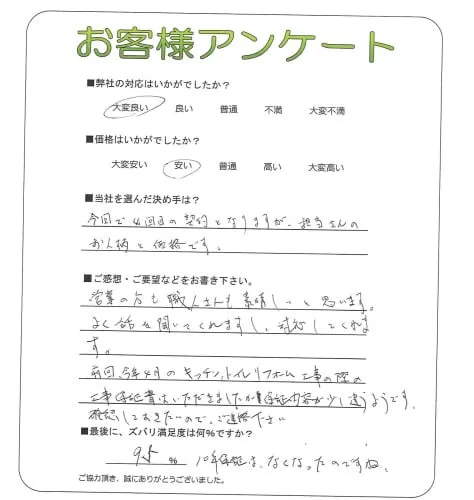 お客様アンケート
■弊社の対応はいかがでしたか?
大変良い 良い 普通 不満 大変不満
■価格はいかがでしたか?
大変安い 安い 普通 高い 大変高い
■当社を選んだ決め手は?
今回で4回目の契約となりますが、担当さんの
お人柄と価格です。
■ご感想・ご要望などをお書き下さい。
営業の方も職人さんも素晴しいと思います。
よく話を聞いてくれますし、対応してくれま
す。
前回、今年4月のキッチン、トイレリフォーム工事の際の
工事保証書はいただきましたが保証内容が少し違うようです。
確認しておきたいので、ご連絡下さい
■最後に、ズバリ満足度は何%ですか?
95 % 10年保証は、なくなったのですね。
ご協力頂き、誠にありがとうございました。